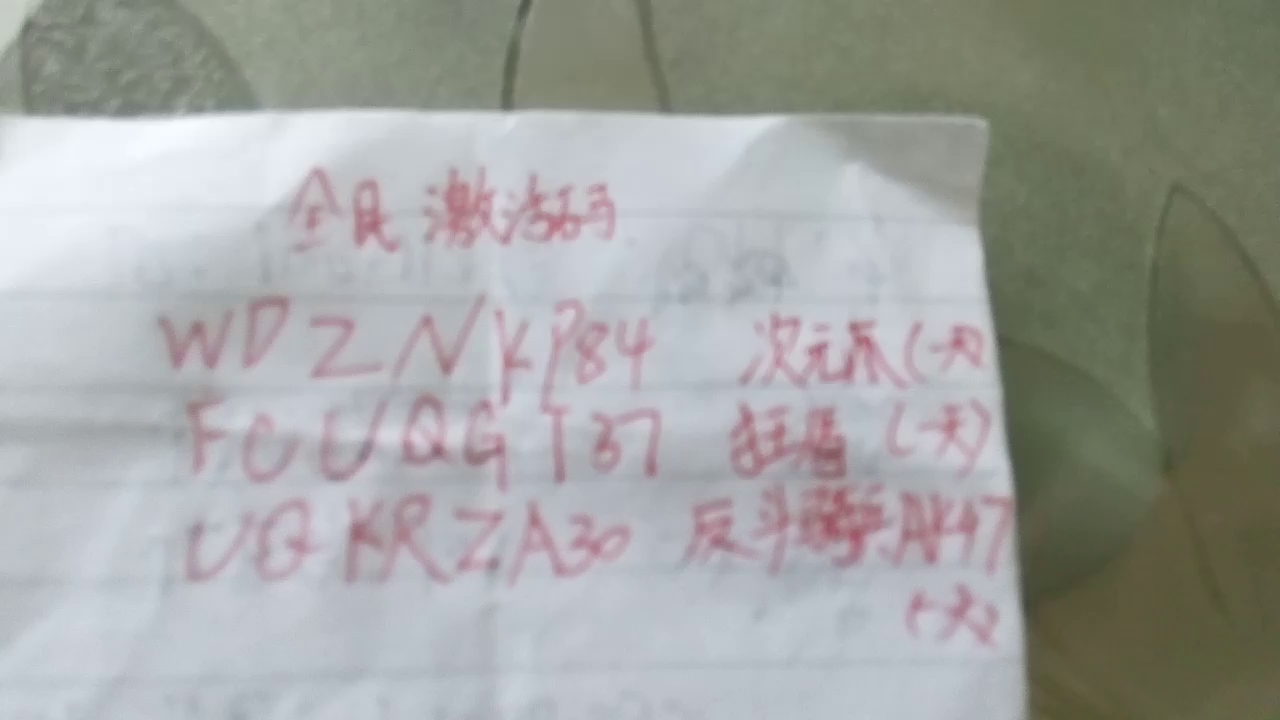 全民 激活码
WDZNKP84 次元爪(一天)
FCUQGT37 狂暑 (一天)
UQKRZA30 反斗骑兵AK47
(一天)